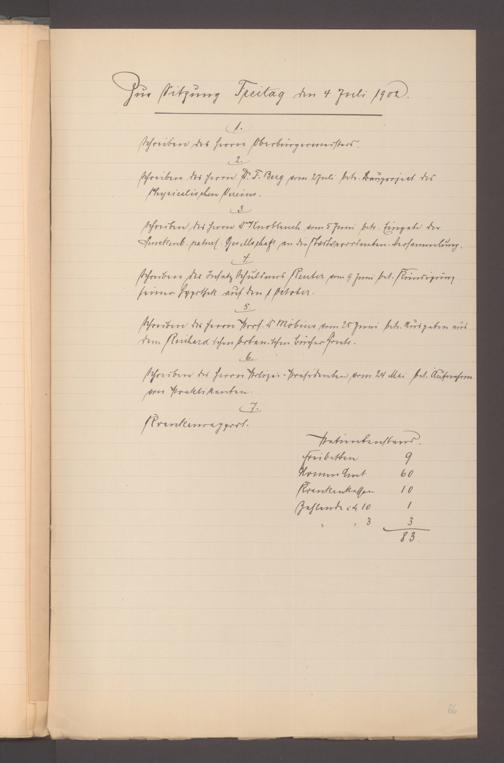 Zur Sitzung Freitag den 4 Juli 1902.
1.
Schreiben des Herrn Oberbürgermeisters.
2.
Schreiben des Herrn Dr. F. Berg vom 2 Juli betr. Bauproject des
Physicalischen Vereins.
3.
Schreiben des Herrn Dr Knoblauch vom 5 Juni betr. Eingabe der
Senckenb. naturf. Gesellschaft an die Stadtverordneten-Versammlung.
4.
Schreiben des Reuter vom 9 Juni bet. Kündigung
seiner Hypothek auf den 1 October.
5.
Schreiben des Herrn Prof. Dr Möbius vom 25 Juni betr. Ausgaben aus
dem Reichard'schen botanischen Bücher Fonds.
6.
Schreiben des Herrn Polizei-Präsidenten vom 24 Mai bet. Aufnahme
von Praktikanten.
7.
Krankenrapport.
Patientenstand.
Freibetten 9
Armen Amt 60
Krankenkassen 10
Zahlende à M 10 1
" " 3 3
83